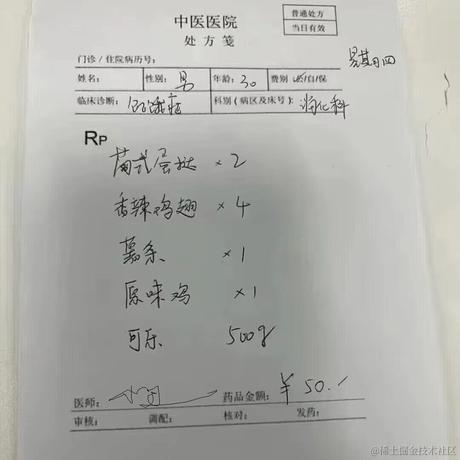 中医医院
普通处方
处方笺
当日有效
门诊/住院病历号:
星期四
姓名: 性别: 男 年龄: 30 费别 公/自/保
临床诊断: 饥饿症 科别(病区及床号): 消化科
RP
葡式蛋挞 ×2
香辣鸡翅 ×4
薯条 ×1
原味鸡 ×1
可乐 500g
医师: 药品金额: ¥50.-
审核: 调配: 核对: 发药:
@稀土掘金技术社区